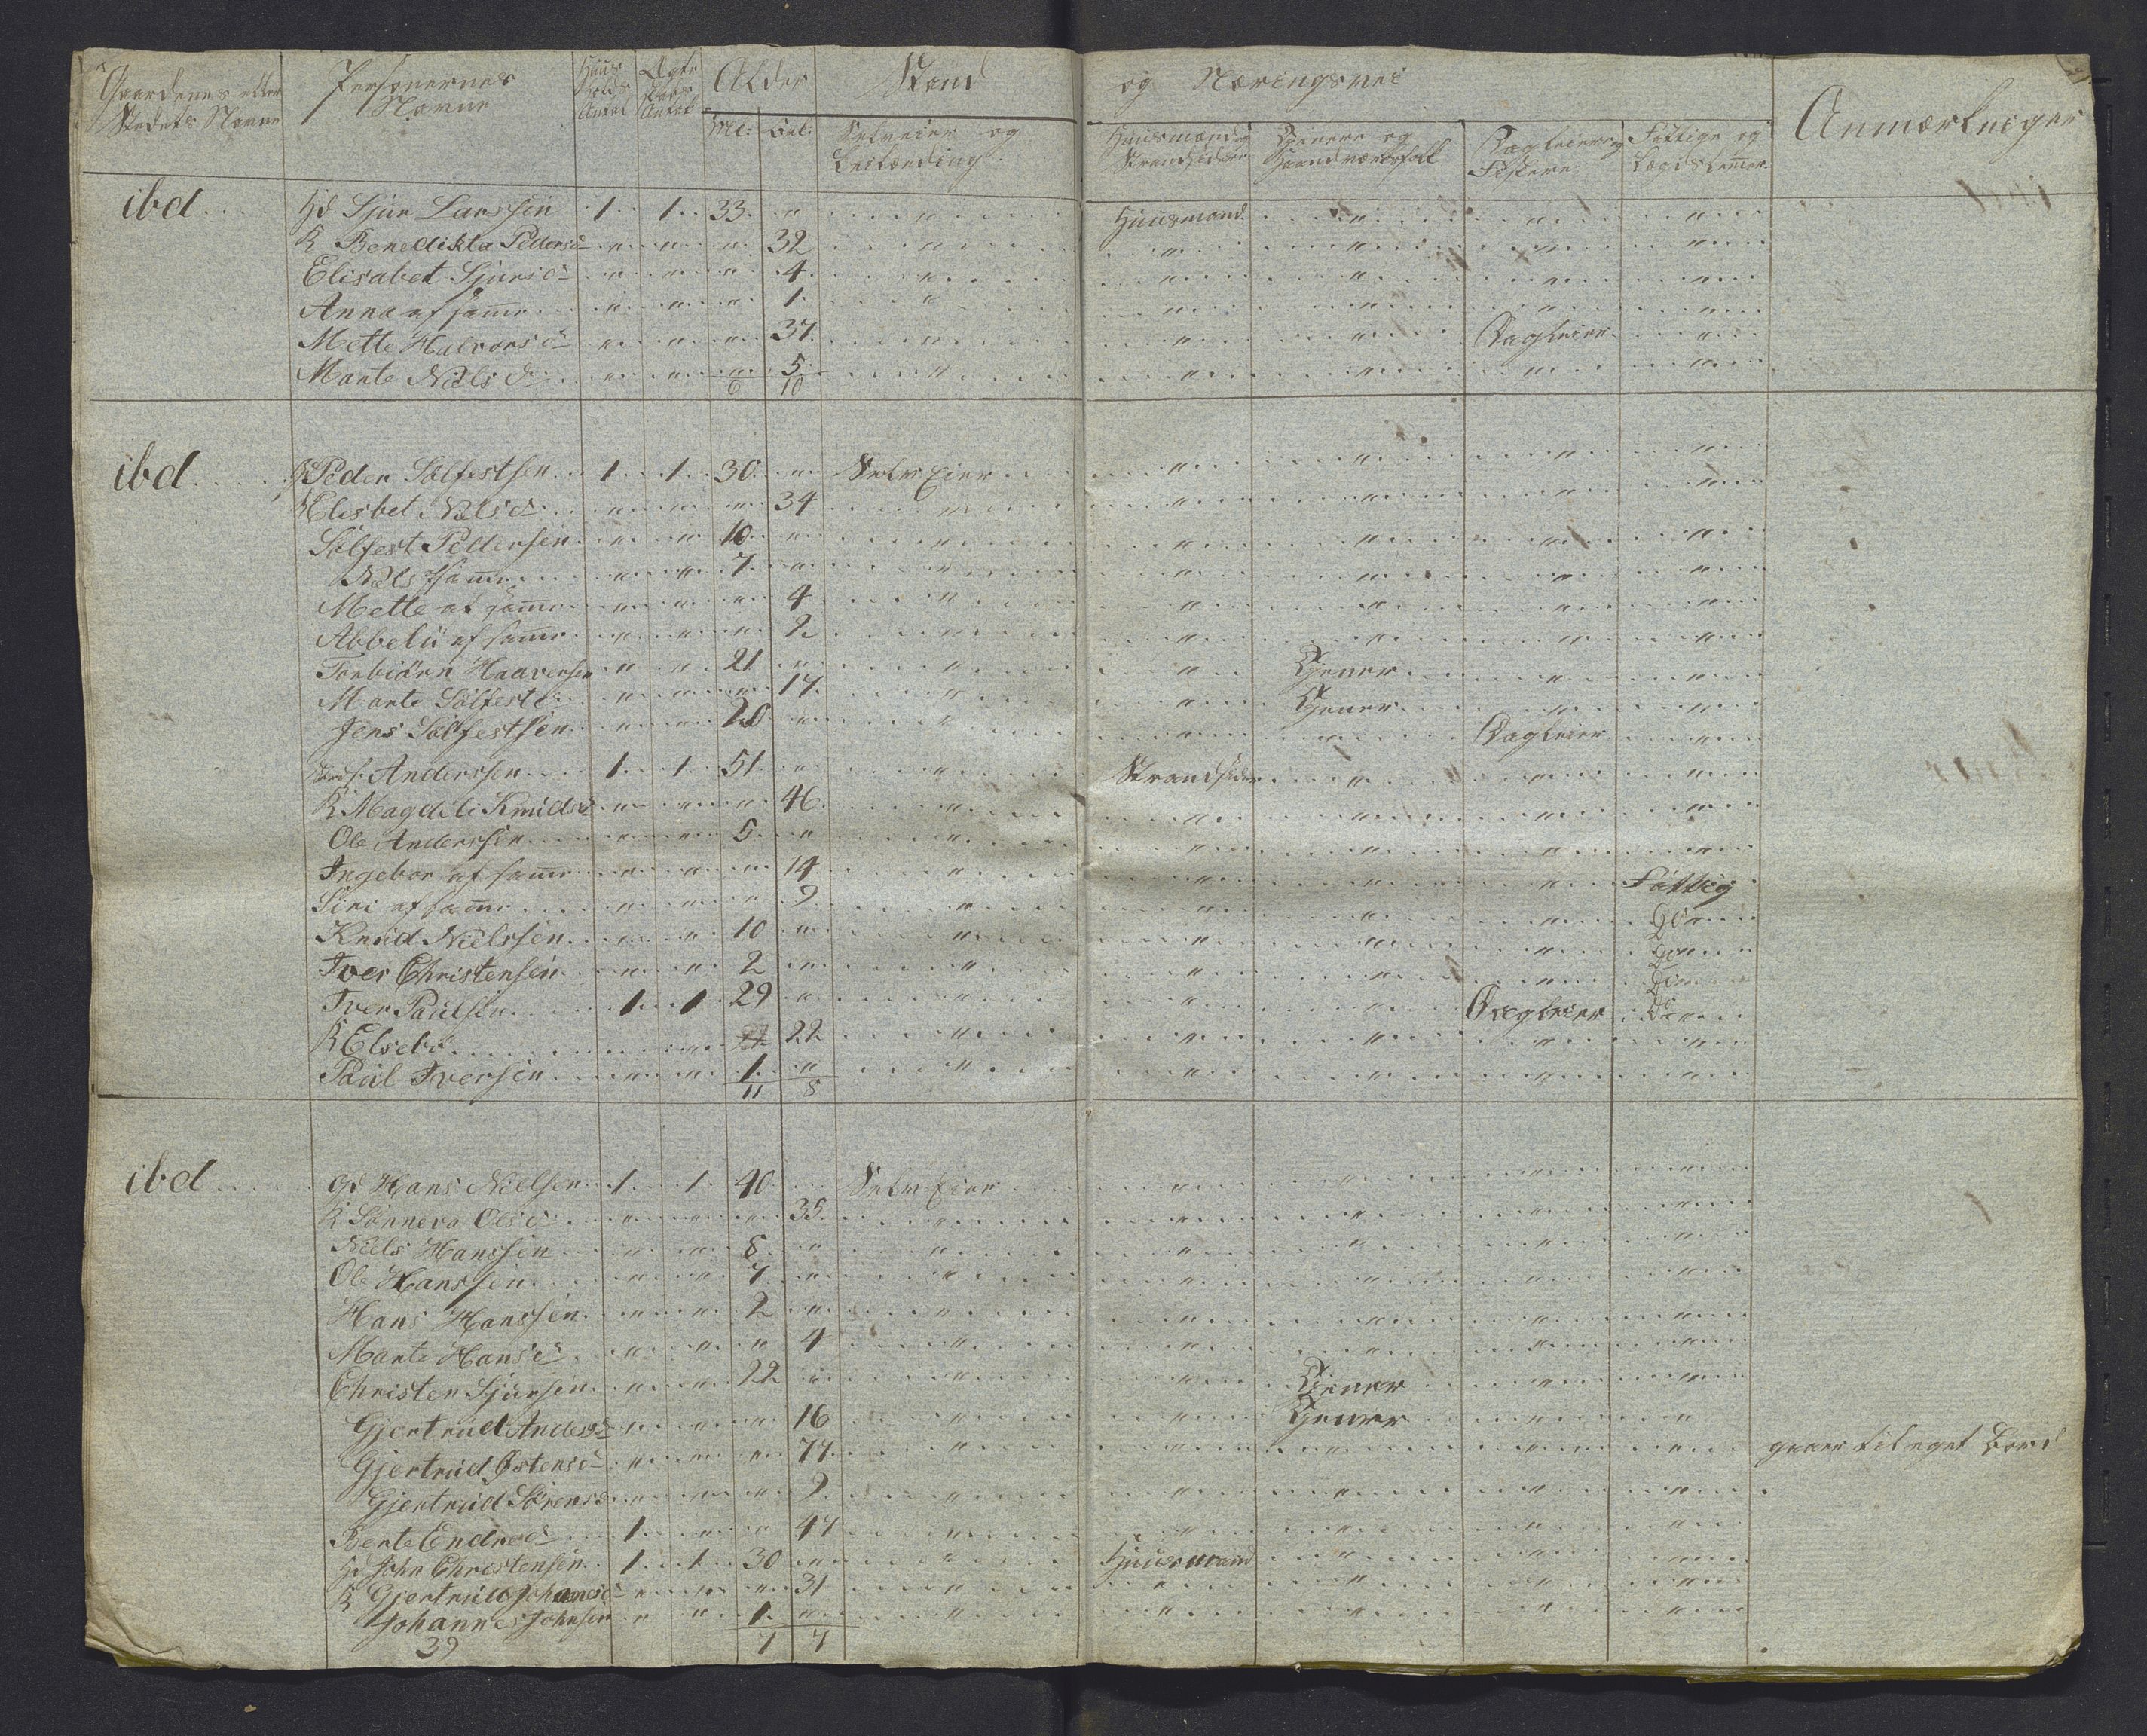 Gaardenes eller Stedets Navne Personernes Navne Huus holds Antal Ægte skabs Antal Alder Stand og Næringsvei Anmærkninger
Ml: Qvl: Selveier og Leilænding. Huusmænd og Strandsidder Tjenere og Haandværksfolk Dagleiere og Fiskere Fattige og Lægdslemer.
ibd Hd Sjur Larssen 1 1 33 " " Huusmand " " "
K Benedikta Peders d " " " 32 " " " " "
Elisabet Sjurs d " " " 4 " " " " "
Anna af same " " " 1 " " " " "
Mette Halvors d " " " 37 " " " Dagleier "
Marte Niels d " " " 5 " " " " "
6 10
ibd G Peder Solfestsen 1 1 30 " Selv Eier " " " "
K Elisbet Nils d " " " 34 " " " " "
Solfest Pedersen " " 10 " " " " " "
Nils af same " " 7 " " " " " "
Mette af same " " " 4 " " " " "
Abbelu af same " " " 2 " " " " "
Torbiörn Haaversen " " 21 " " " Tjener " "
Marte Sölfest d " " " 17 " " Tjener " "
Jens Solfestsen " " 20 " " " " Dagleier "
Anderssen 1 1 51 " " Strandsider " " "
K Magdeli Knuds d " " " 46 " " " " "
Ole Anderssen " " 5 " " " " " "
Ingebor af same " " " 14 " " " " Fattig
Siri af same " " " 9 " " " " Do
Knud Nielssen " " 10 " " " " " Do
Iver Christensen " " 2 " " " " " Do
Iver Paulsen 1 1 29 " " " " Dagleier Do
K Elsebe " " 22 " " " " "
Paul Iversen " " 1 " " " " " "
11 8
ibd Gd Hans Nielsen 1 1 40 Selv Eier " " " "
K Sönneva Ols d " " " 35 " " " "
Niels Hanssen " " 8 " " " " " "
Ole Hanssen " " 7 " " " " " "
Hans Hanssen " " 2 " " " " " "
Marte Hans d " " " 4 " " " " "
Christen Sjursen " " 22 " " " Tjener " "
Gjertrud Anders d " " " 16 " " Tjener " "
Gjertrud Östens d " " " 77 " " " " " gaaer til eget Bord
Gjertrud Sörens d " " " 9 " " " " "
Berte Endres d 1 " " 47 " " " " "
Hd John Christensen 1 1 30 " " Huusmand " " "
K Gjertrud Johanes d " " " 31 " " " " "
Johannes Johnsen " " 1 " " " " " "
39 7 7